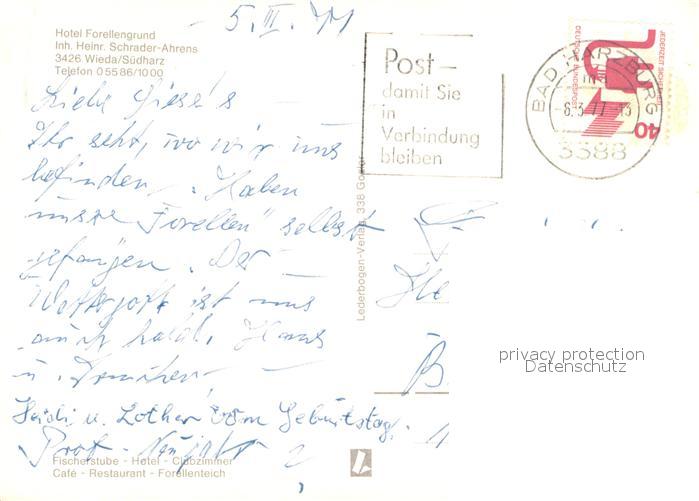 Hotel Forellengrund
Inh. Heinr. Schrader-Ahrens
3426 Wieda/Südharz
Telefon 0 55 86/10 00
5. III. 77
Liebe Giese's
Ihr seht, wo wir uns
befinden. Haben
unsre "Forellen" selbst
gefangen. Der
Wettergott ist uns
auch hold. Hans
u.
Heidi u. Lothar vom Geburtstag.
Prost - Neujahr
Fischerstube - Hotel - Clubzimmer
Café - Restaurant - Forellenteich
Lederbogen-Verlag 338 Goslar
Post –
damit Sie
in
Verbindung
bleiben
BAD HARZBURG
3388
JEDERZEIT SICHERHEIT
DEUTSCHE BUNDESPOST
40
He
B
privacy protection
Datenschutz